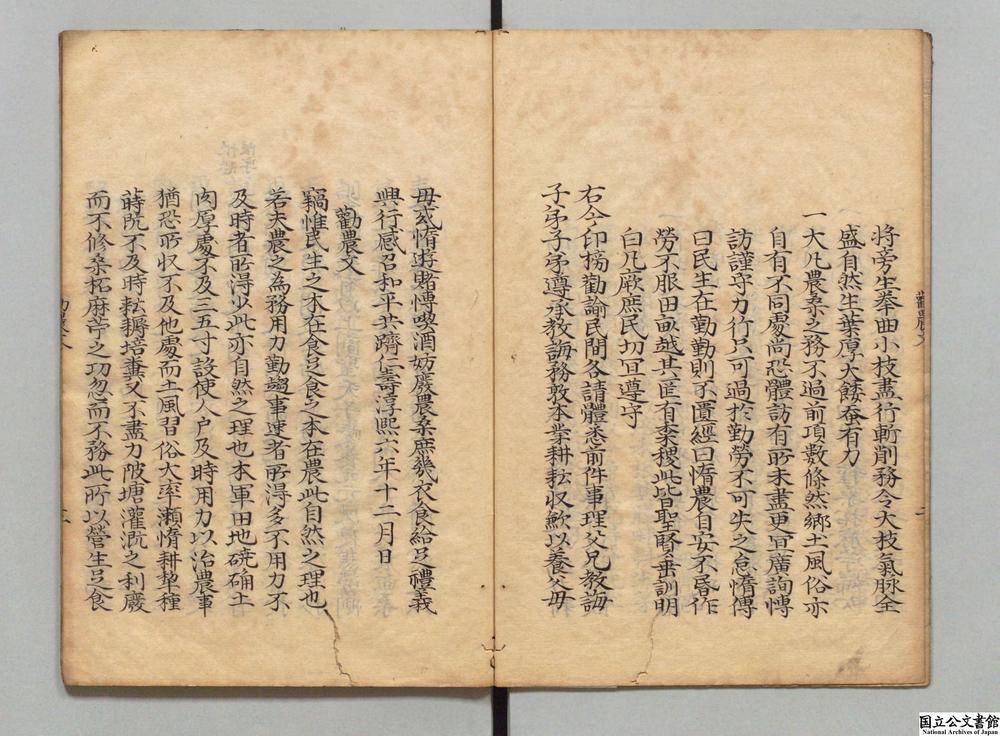 將旁生拳曲小枝盡行斬削務令大枝氣脉全
盛自然生葉厚大餧蚕有力
一大凡農桑之務不過前項數條然鄉土風俗亦
自有不同處尚恐體訪有所未盡更宜廣詢愽
訪謹守力行只可過於勤勞不可失之怠惰傳
曰民生在勤勤則不匱經曰惰農自安不昏作
勞不服田畝越其罔有黍稷此皆聖賢垂訓明
白凡厥庶民切宜遵守
右今印榜勸諭民間各請體悉前件事理父兄教誨
子弟子弟遵承教誨務敦本業耕耘収歛以養父母
毋或惰遊賭愽喫酒妨廢農桑庶幾衣食給足禮義
興行感召和平共躋仁壽淳熙六年十二月日
勸農文
竊惟民生之本在食足食之本在農此自然之理也
若夫農之為務用力勤趨事速者所得多不用力不
及時者所得少此亦自然之理也本軍田地磽确土
肉厚處不及三五寸設使人户及時用力以治農事
猶恐所収不及他處而土風習俗大率瀬惰耕犂種
蒔既不及時耘耨培糞又不盡力陂塘灌溉之利廢
而不修桑柘麻苧之功忽而不務此所以營生足食
勸農文
國立公文書館
National Archives of Japan